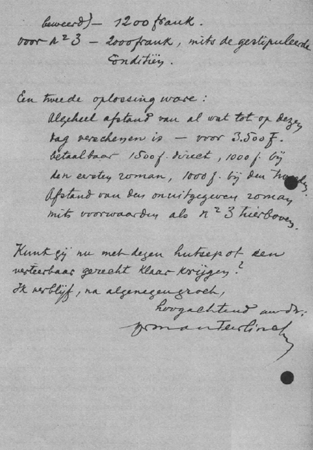 beweerd) – 1200 frank.
voor N° 3 – 2000 frank, mits de gestipuleerde
conditiën.
Een tweede oplossing ware:
Algeheel afstand van al wat tot op dezen
dag verschenen is – voor 3.500 f.
betaalbaar 1500 f. direct, 1000 f. bij
den eersten roman, 1000 f. bij den
Afstand van den onuitgegeven roman
mits voorwaarden als N° 3 hierboven.
Kunt gij nu met dezen hutsepot een
verteerbaar gerecht klaar krijgen?
Ik verblijf, na algenegen groet,
hoogachtend uw dr.
Herman Teirlinck